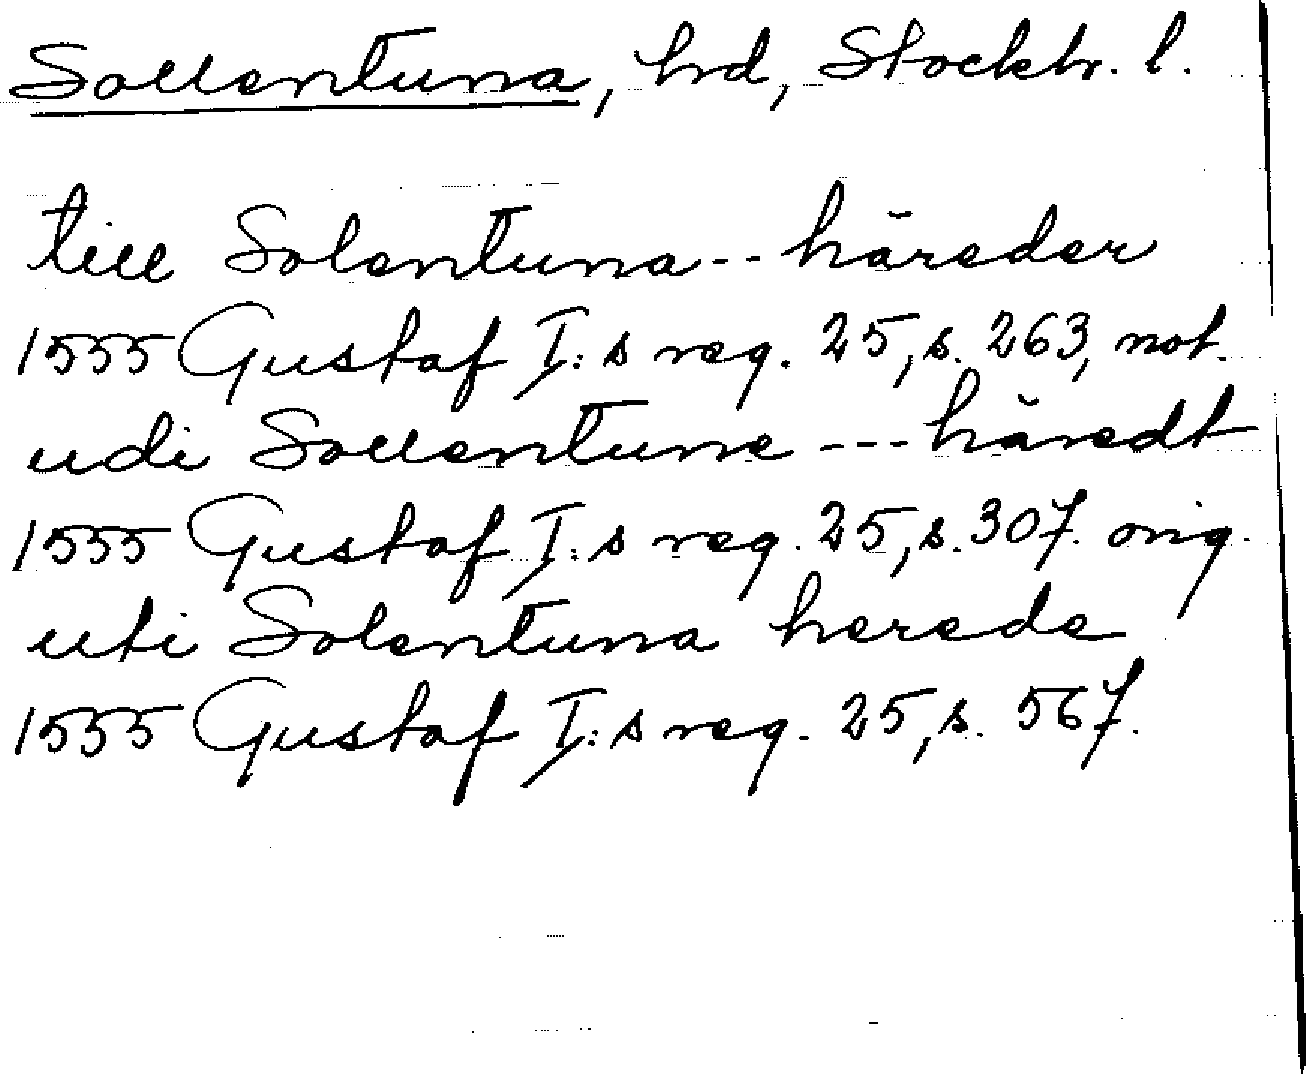 Sollentuna, hrd, Stockh. l.
till Solentuna -- häreder
1555 Gustaf I:s reg. 25, s. 263, not.
udi Sollentune --- häredt
1555 Gustaf I:s reg. 25, s. 307. orig.
uti Solentuna herede
1555 Gustaf I:s reg. 25, s. 567.